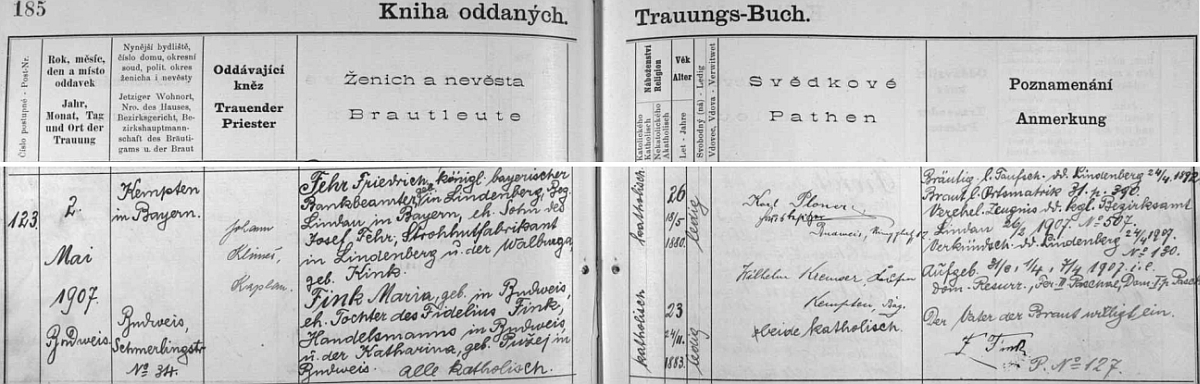 185
Kniha oddaných.
Trauungs-Buch.
Číslo postupné - Post-Nr.
Rok, měsíc,
den a místo
oddavek
Jahr,
Monat, Tag
und Ort der
Trauung
Nynější bydliště,
číslo domu, okresní
soud, polit. okres
ženicha i nevěsty
Jetziger Wohnort,
Nro. des Hauses,
Bezirksgericht, Be-
zirkshauptmann-
schaft des Bräuti-
gams u. der Braut
Oddávající
kněz
Trauender
Priester
Ženich a nevěsta
Brautleute
Náboženství
Religion
Katolického
Katholisch
Nekatolického
Akatholisch
Věk
Alter
Let - Jahre
Svobodný (ná) - Ledig
Vdovec, Vdova - Verwitwet
Svědkové
Pathen
Poznamenání
Anmerkung
123.
2.
Mai
1907.
Budweis.
Kempten
in Bayern.
Budweis,
Schmerlingstr.
No 34.
Johann
Klimeš,
Kaplan.
Fehr Friedrich, königl. bayerischer
Bankbeamter, geb. in Lindenberg, Bez.
Lindau in Bayern, eh. Sohn des
Josef Fehr, Strohhutfabrikant
in Lindenberg u. der Walburga,
geb. Fink.
Fink Maria, geb. in Budweis,
eh. Tochter des Fidelius Fink,
Handelsmanns in Budweis,
u. der Katharina, geb. Pužej in
Budweis. alle katholisch.
katholisch
26
18/5
1880.
ledig
katholisch
23
24/11.
1883.
ledig
Karl Ploner
Budweis,
Wilhelm
Kempten, Bay.
beide katholisch.
Bräutig. l. Taufsch. dd. Lindenberg 24/4. 1892
Braut l. Ortsmatrik 31. p. 390.
Verehel. Zeugnis dd. kgl. Bezirksamt
Lindau 26/3 1907. No 507.
Verkündsch. dd. Lindenberg 22/4 1907.
No 130.
Aufgeb. 31/3, 1/4, 7/4 1907. i. e.
Dom. Resurr., Fer. II Paschal, Dom. I p. Pasch
Der Vater der Braut willigt ein.
F. Fink
P. No 127.